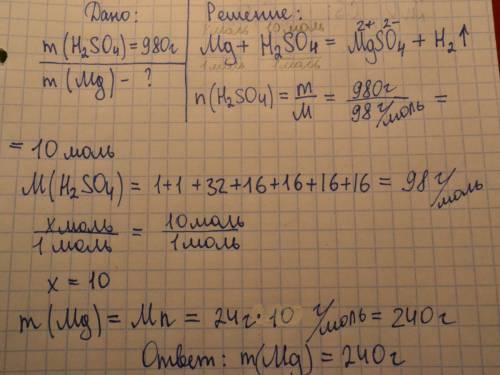 Дано:
m(H₂SO₄)=980г
m(Mg) - ?
Решение:
x моль 10 моль
Mg + H₂SO₄ = Mg²⁺SO₄²⁻ + H₂↑
1 моль 1 моль
n(H₂SO₄) = m/M = 980г / 98 г/моль =
= 10 моль
M(H₂SO₄) = 1+1+32+16+16+16+16 = 98 г/моль
x моль / 1 моль = 10 моль / 1 моль
x = 10
m(Mg) = Mn = 24г·10 г/моль = 240г
Ответ: m(Mg) = 240г